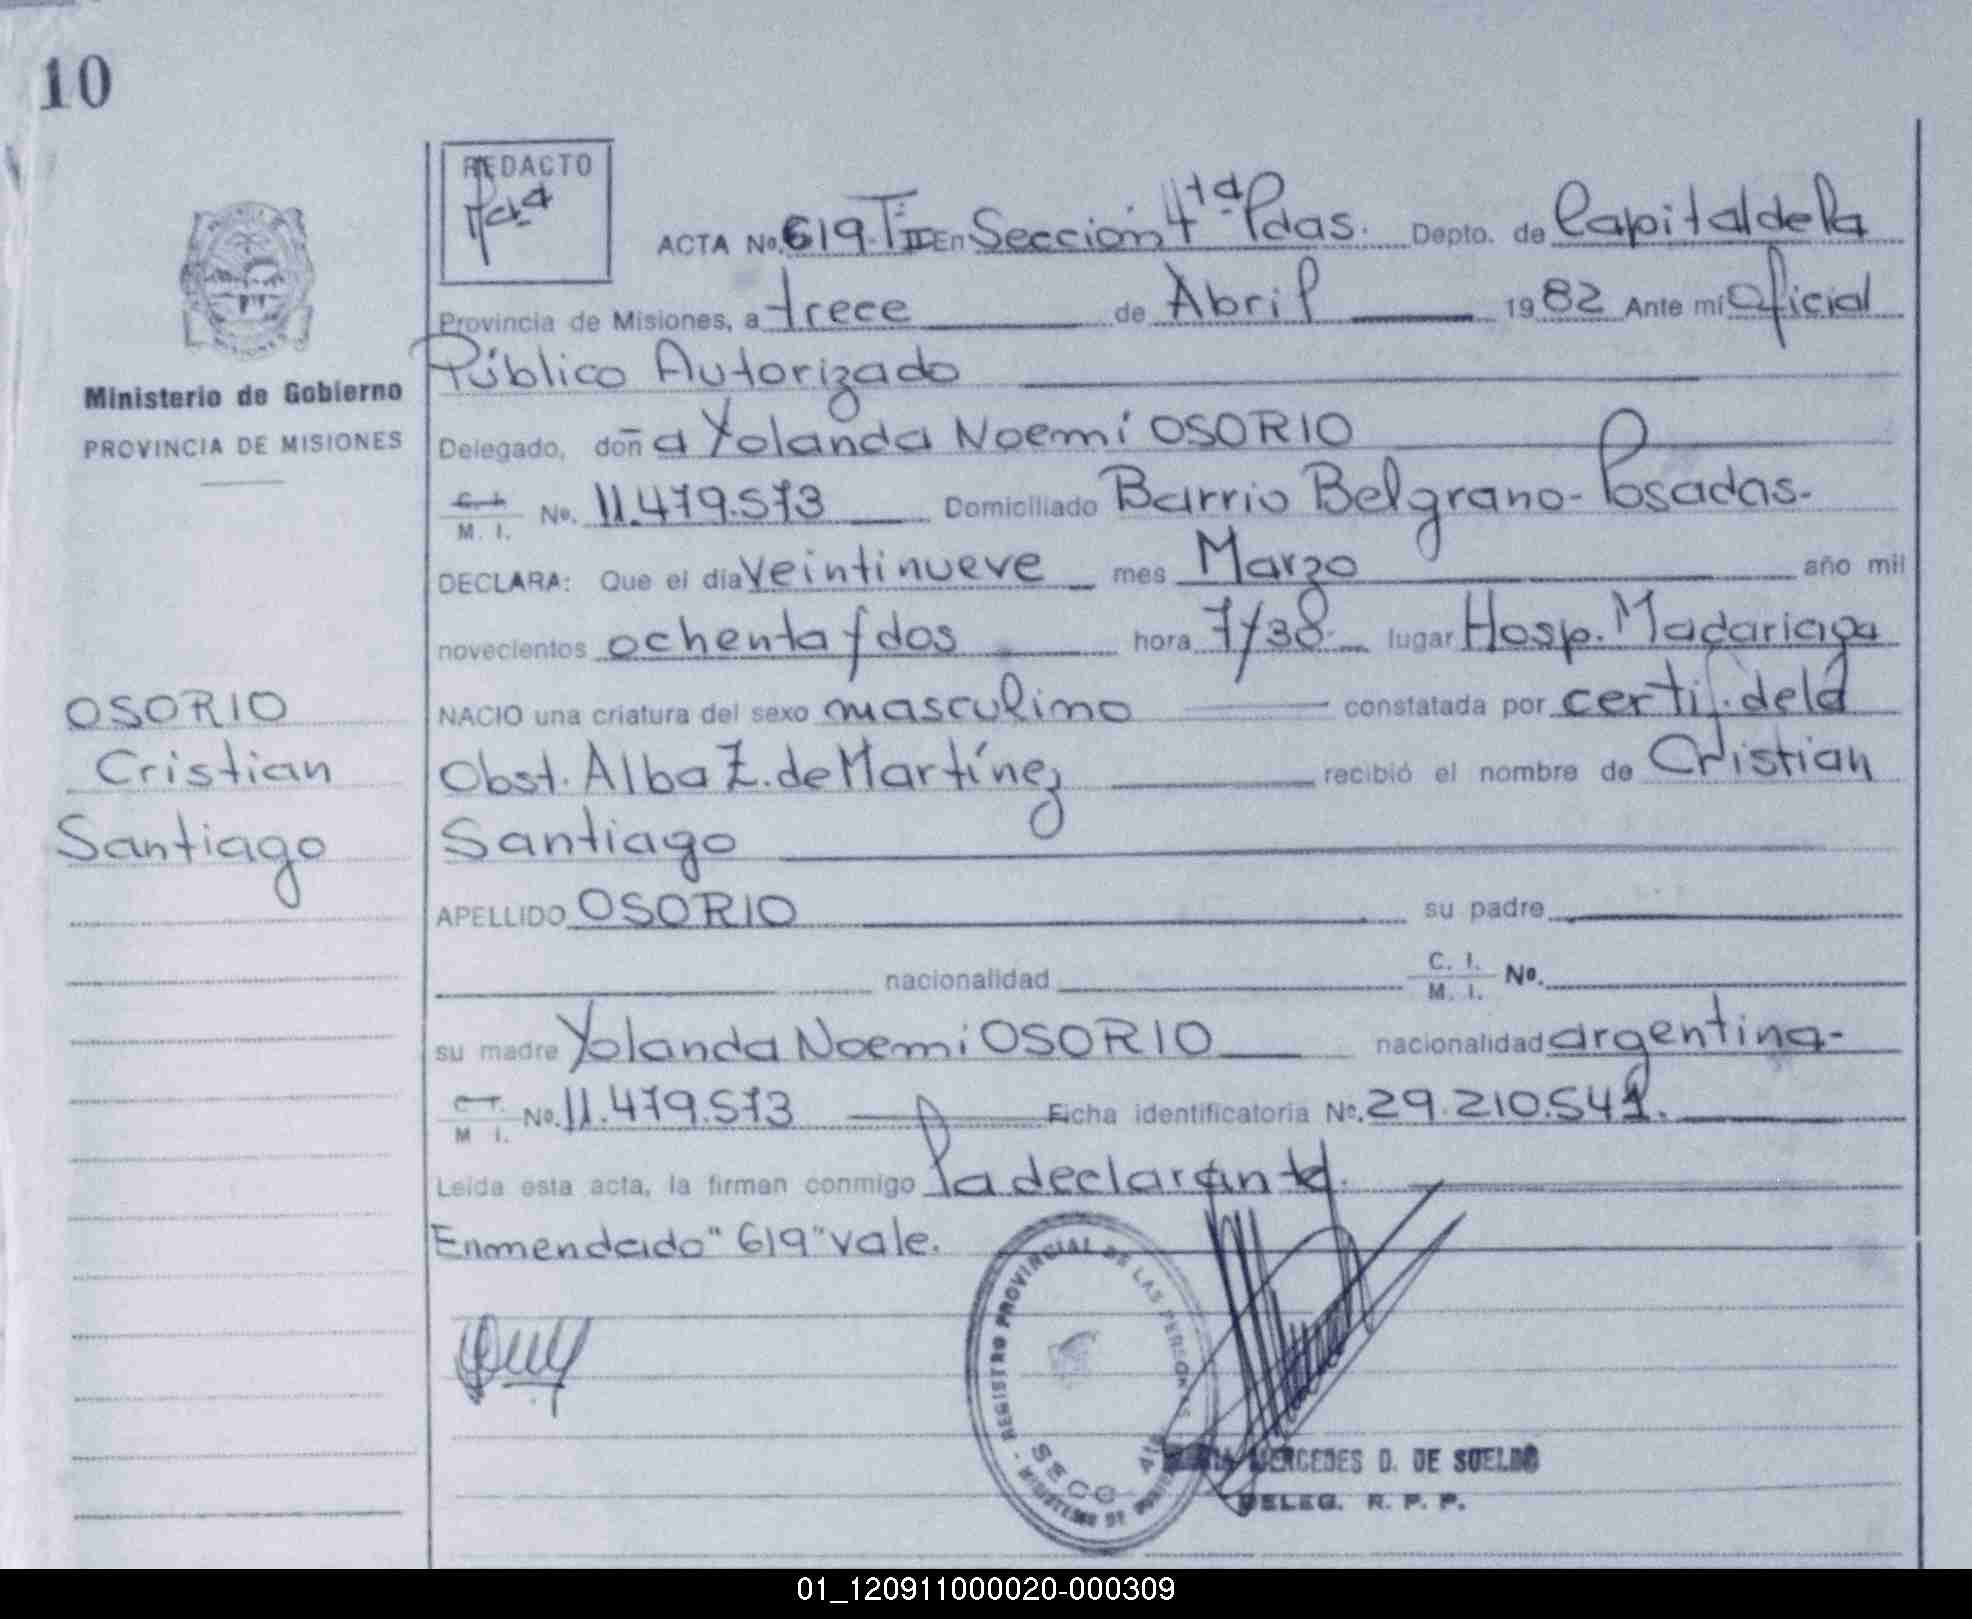 10
REDACTO
ACTA No. 619. T II En Sección 4ta Pdas. Depto. de Capital de la
Provincia de Misiones, a trece de Abril 1982 Ante mí Oficial
Público Autorizado
Delegado, doña Yolanda Noemí OSORIO
C. I. M. I. No. 11.479.573 Domiciliado Barrio Belgrano- Posadas.
DECLARA: Que el día veintinueve mes Marzo año mil
novecientos ochenta y dos hora 7/38 lugar Hosp. Madariaga
NACIO una criatura del sexo masculino constatada por certif. de la
Obst. Alba Z. de Martínez recibió el nombre de Cristian
Santiago
APELLIDO OSORIO su padre
nacionalidad C. I. M. I. No.
su madre Yolanda Noemi OSORIO nacionalidad argentina-
C. I. M. I. No. 11.479.573 Ficha identificatoria No. 29.210.541.
Leída esta acta, la firman conmigo la declarante.
Enmendado "619" vale.
Ministerio de Gobierno
PROVINCIA DE MISIONES
OSORIO
Cristian
Santiago
REGISTRO PROVINCIAL DE LAS PERSONAS
SECC. 4ta
MINISTERIO DE
MERCEDES D. DE SUELDO
DELEG. R. P. P.
01_120911000020-000309